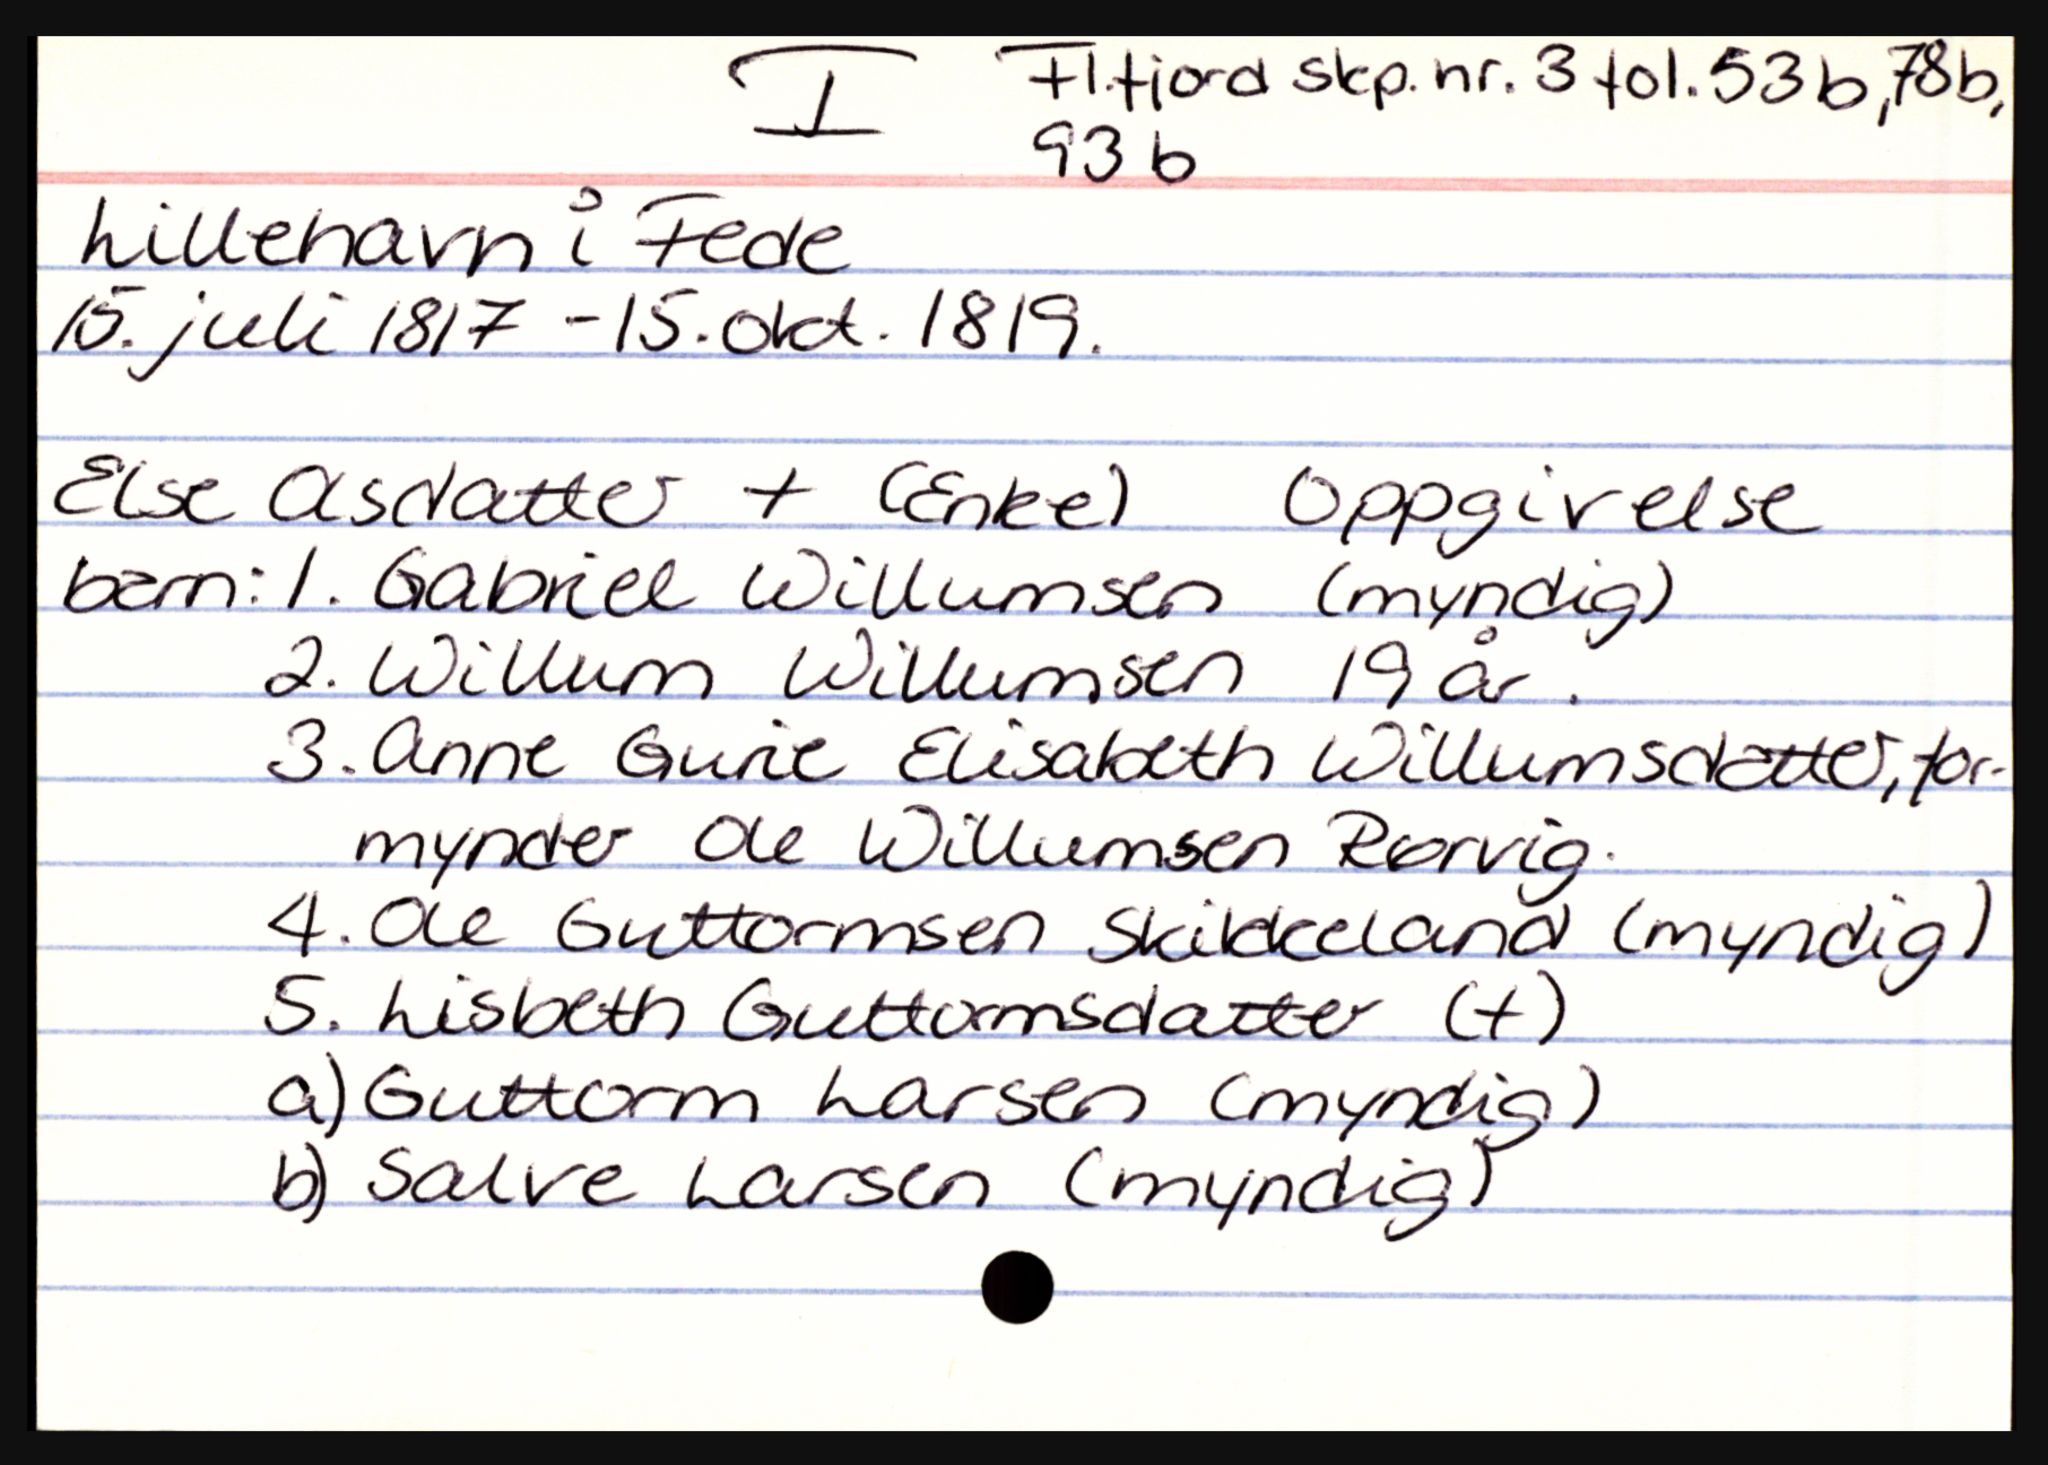 I Fl.fjord skp. nr. 3 fol. 53b, 78b,
93b
Lillehavn i Fede
15. juli 1817 - 15. okt. 1819.
Else Asdatter + (Enke) Oppgivelse
barn: 1. Gabriel Willumsen (myndig)
2. Willum Willumsen 19 år.
3. Anne Gurie Elisabeth Willumsdatter, for-
mynder Ole Willumsen Rørvig.
4. Ole Guttormsen Skikkeland (myndig)
5. Lisbeth Guttormsdatter (+)
a) Guttorm Larsen (myndig)
b) Salve Larsen (myndig)